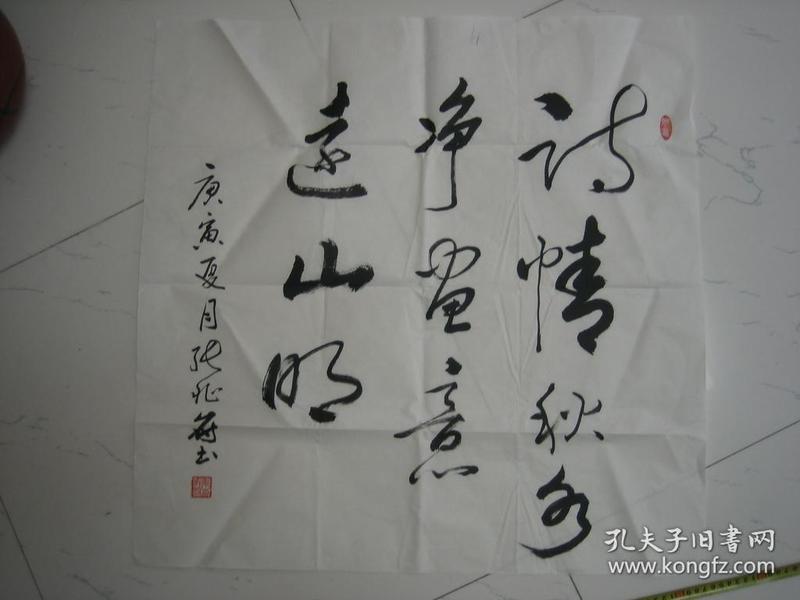 詩情秋水
净畫意
遠山明
庚寅夏月張
書
孔夫子旧書网
www.kongfz.com